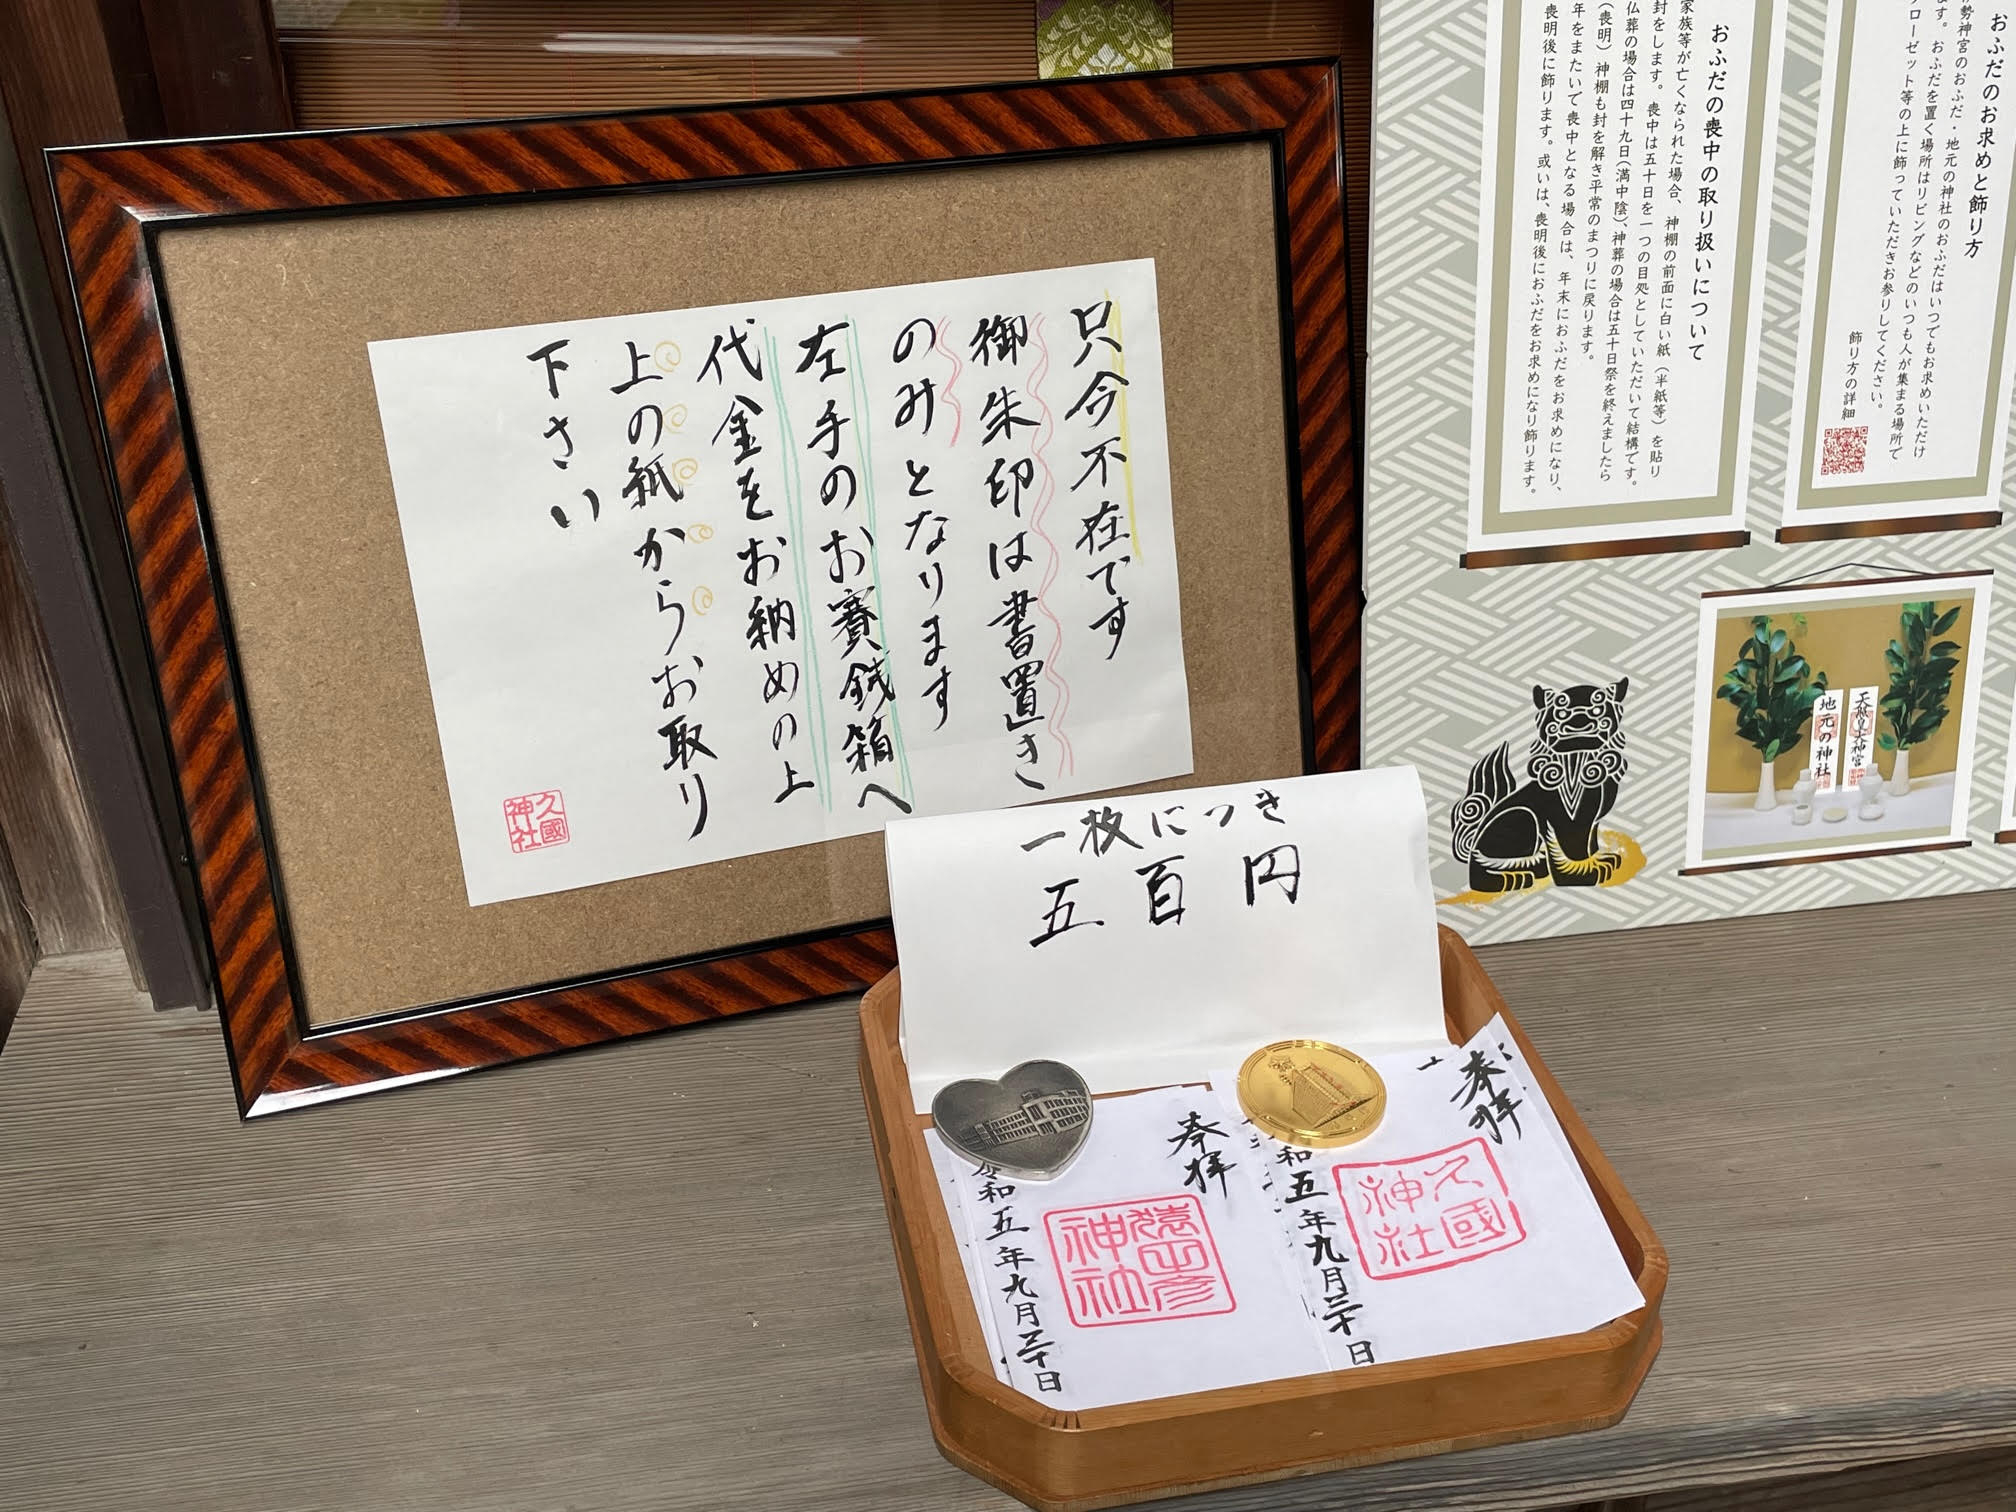 只今不在です
御朱印は書置き
のみとなります
左手のお賽銭箱へ
代金をお納めの上
上の紙からお取り
下さい
久國
神社
一枚につき
五百円
奉拝
猿田彦
神社
令和五年九月三十日
奉拝
久國
神社
和五年九月三十日
おふだの喪中の取り扱いについて
家族等が亡くなられた場合、神棚の前面に白い紙(半紙等)を貼り
封をします。喪中は五十日を一つの目処としていただいて結構です。
仏葬の場合は四十九日(満中陰)、神葬の場合は五十日祭を終えましたら
(喪明)神棚も封を解き平常のまつりに戻ります。
年をまたいで喪中となる場合は、年末におふだをお求めになり、
喪明後に飾ります。或いは、喪明後におふだをお求めになり飾ります。
おふだのお求めと飾り方
伊勢神宮のおふだ・地元の神社のおふだはいつでもお求めいただけ
ます。おふだを置く場所はリビングなどのいつも人が集まる場所で
クローゼット等の上に飾っていただきお参りしてください。
飾り方の詳細
天照皇大神宮
地元の神社